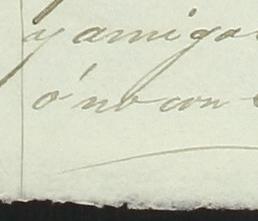 y amiga
ó no con